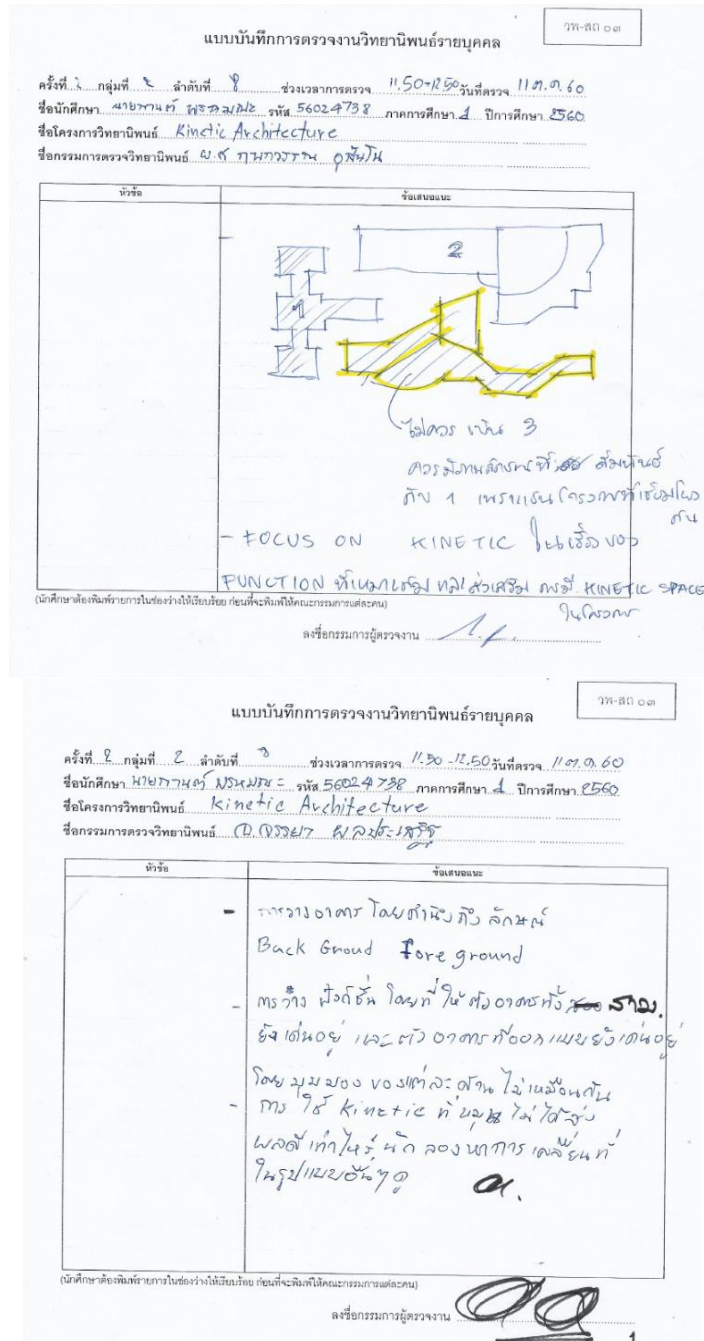 วพ-สถ ๐๓
แบบบันทึกการตรวจงานวิทยานิพนธ์รายบุคคล
ครั้งที่ 2 กลุ่มที่ 2 ลำดับที่ 8 ช่วงเวลาการตรวจ 11.50-12.50 วันที่ตรวจ 11 ต.ค. 60
ชื่อนักศึกษา นายกานต์ พรหมณะ รหัส 56024738 ภาคการศึกษา 1 ปีการศึกษา 2560
ชื่อโครงการวิทยานิพนธ์ Kinetic Architecture
ชื่อกรรมการตรวจวิทยานิพนธ์ ผ.ศ
หัวข้อ ข้อเสนอแนะ
2
1
ไม่ควร เป็น 3
ควรมีภาพลักษณ์ที่ สัมพันธ์
กับ 1 เพราะเป็นโครงการที่เชื่อมโยง
กัน
- FOCUS ON KINETIC ในเรื่องของ
FUNCTION ที่เหมาะสม และส่งเสริม การมี KINETIC SPACE
ในโครงการ
(นักศึกษาต้องพิมพ์รายการในช่องว่างให้เรียบร้อย ก่อนที่จะพิมพ์ให้คณะกรรมการแต่ละคน)
ลงชื่อกรรมการผู้ตรวจงาน
วพ-สถ ๐๓
แบบบันทึกการตรวจงานวิทยานิพนธ์รายบุคคล
ครั้งที่ 2 กลุ่มที่ 2 ลำดับที่ 8 ช่วงเวลาการตรวจ 11.50-12.50 วันที่ตรวจ 11 ต.ค. 60
ชื่อนักศึกษา นายกานต์ พรหมณะ รหัส 56024738 ภาคการศึกษา 1 ปีการศึกษา 2560
ชื่อโครงการวิทยานิพนธ์ Kinetic Architecture
ชื่อกรรมการตรวจวิทยานิพนธ์ อ.จรรยา ผลประเสริฐ
หัวข้อ ข้อเสนอแนะ
- การวางอาคาร โดยคำนึงถึง ลักษณ์
Back Ground Fore ground
- การวาง ฟังก์ชั่น โดยที่ ให้ ตัวอาคารทั้ง สาม.
ยังเด่นอยู่ และตัว อาคารที่ออกแบบยังเด่นอยู่
โดย มุมมอง ของแต่ละ ด้าน ไม่เหมือนกัน
- การ ใช้ Kinetic ที่ หมุน ไม่ ได้ส่ง
ผลดี เท่าไหร่ นัก ลองหาการ เคลื่อนที่
ในรูปแบบอื่นๆ ดู
(นักศึกษาต้องพิมพ์รายการในช่องว่างให้เรียบร้อย ก่อนที่จะพิมพ์ให้คณะกรรมการแต่ละคน)
ลงชื่อกรรมการผู้ตรวจงาน
1